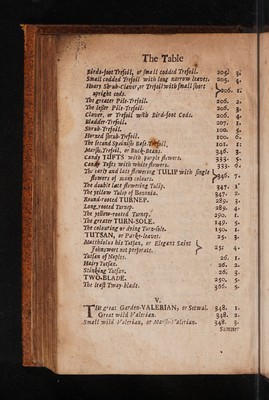 The Table
Birds-foot Trefoil, or small codded Trefoil. 205. 3.
Small codded Trefoil with long narrow leaves. 205. 4.
Hoary Shrub-Claver, or Trefoil with small short upright cods. } 206. 1.
The greater Pile-Trefoil. 206. 2.
The lesser Pile-Trefoil. 206. 3.
Claver, or Trefoil with Bird-foot Cods. 206. 4.
Bladder-Trefoil. 207. 1.
Shrub-Trefoil. 100. 5.
Horned shrub-Trefoil. 100. 6.
The second Spanish Base-Trefoil. 101. 1:
Marsh-Trefoil, or Buck-Beans. 346. 3.
Candy TUFTS with purple flowers. 333. 5.
Candy Tufts with white flowers. 333. 6.
The early and late flowering TULIP with single flowers of many colours. } 346. 7.
The double late flowering Tulip. 347. 1.
The yellow Tulip of Bononia. 347. 2.
Round-rooted TURNEP. 289. 3.
Long-rooted Turnep. 289. 4.
The yellow-rooted Turnep. 290. 1.
The greater TURN-SOLE. 149. 5.
The colouring or dying Turn-sole. 150. 1.
TUTSAN, or Park-leaves. 25. 3.
Matthiolus his Tutsan, or Elegant Saint Johnswort not perforate. } 25: 4.
Tutsan of Naples. 26. 1.
Hairy Tutsan. 26. 2.
Stinking Tutsan. 26. 3.
TWO-BLADE. 250. 5.
The least Tway-blade. 366. 5.
V.
The great Garden-VALERIAN, or Setwal. 348. 1.
Great wild Valerian. 348. 2.
Small wild Valerian, or Marsh-Valerian. 348. 3.
Summer